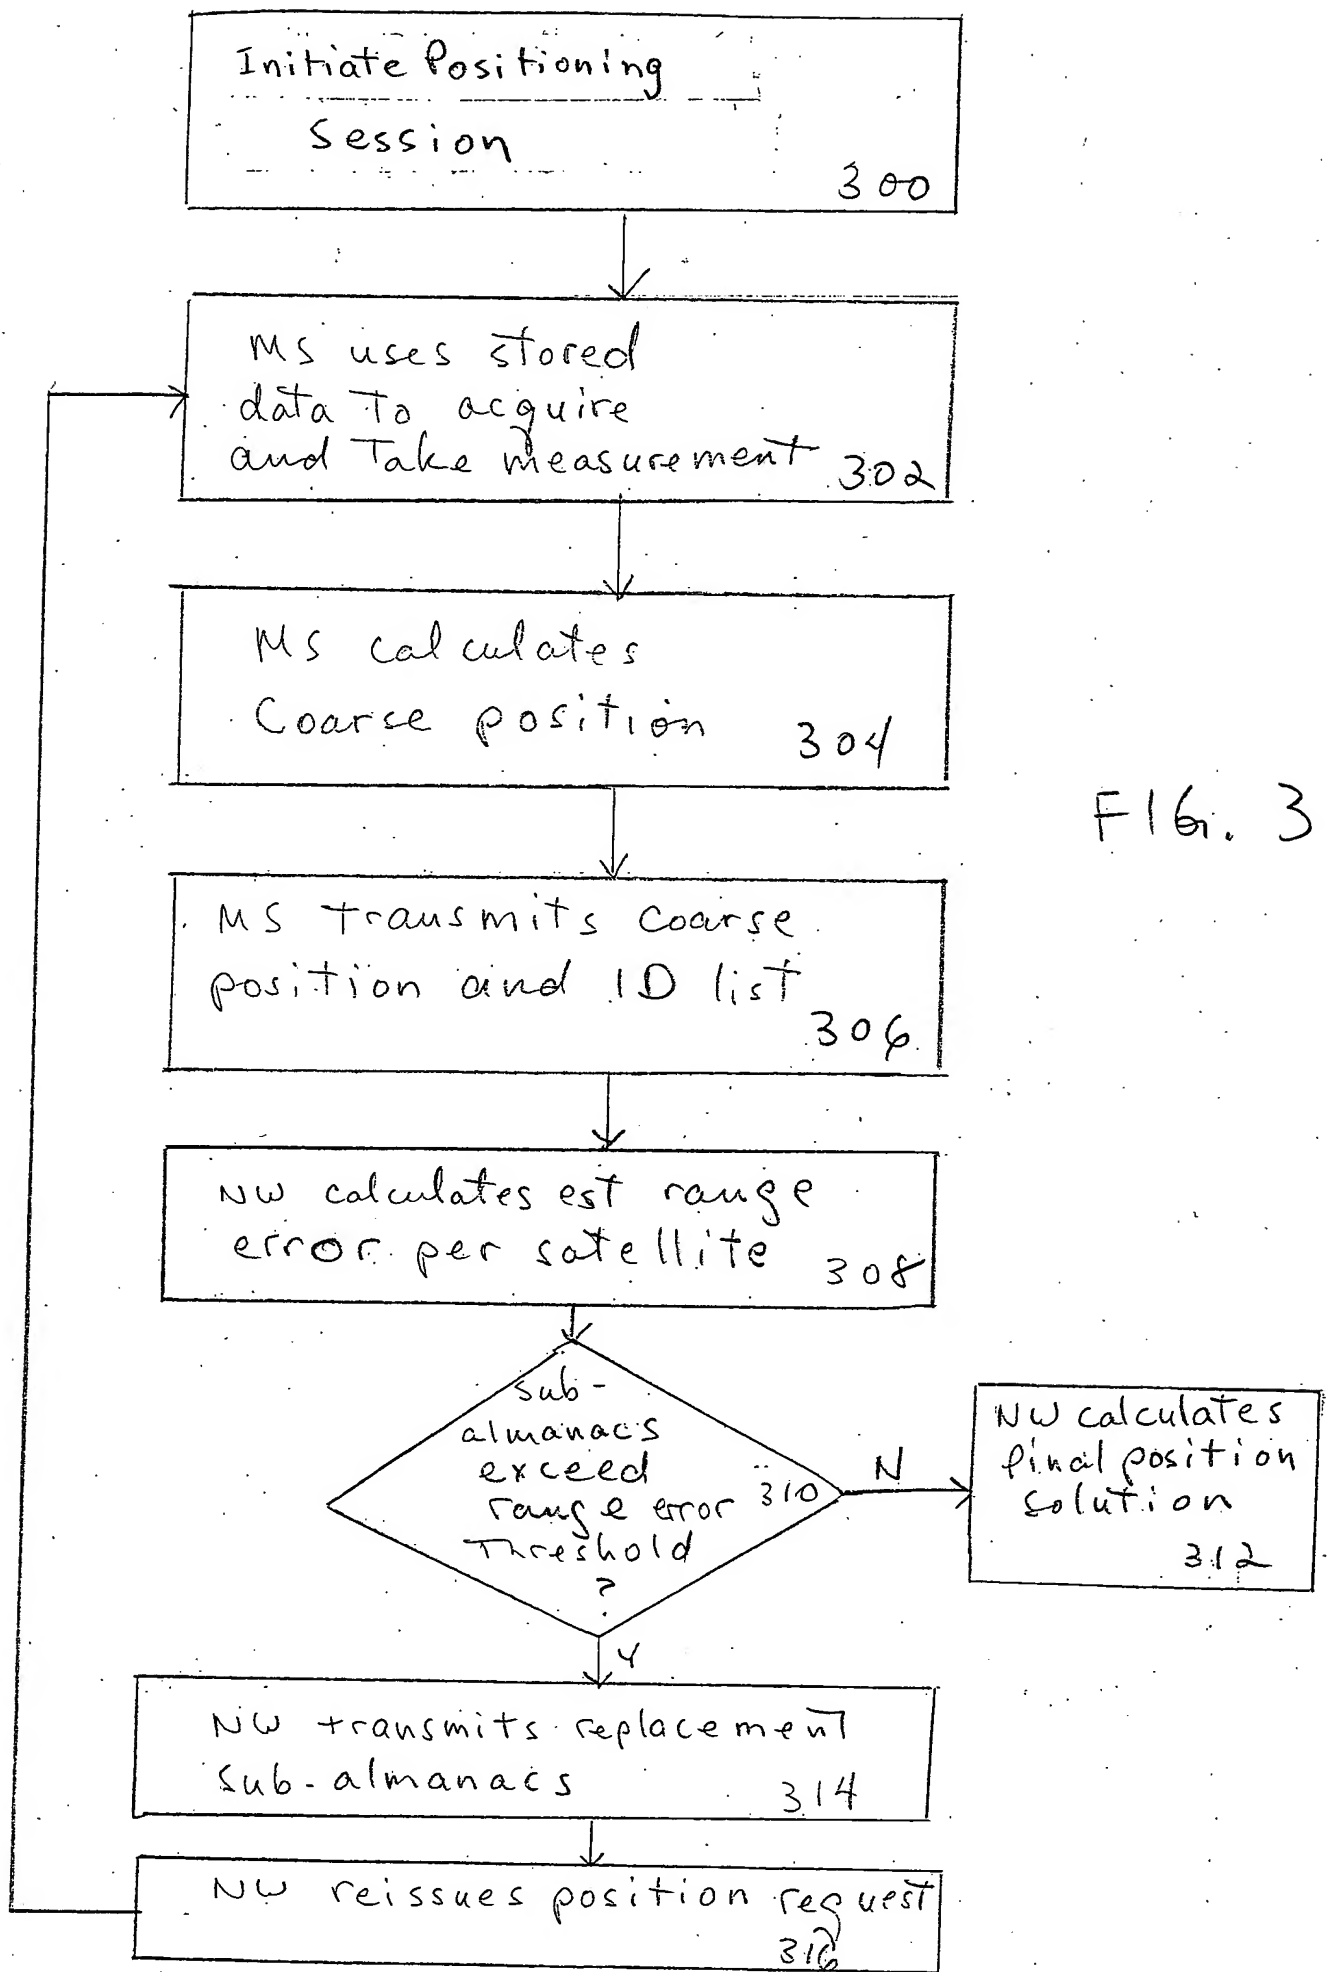 Initiate Positioning
Session
300
MS uses stored
data to acquire
and Take measurement 302
MS calculates
Coarse position 304
FIG. 3
MS transmits coarse
position and ID list
306
NW calculates est range
error per satellite 308
sub-
almanacs
exceed
range error 310
Threshold
?
N
NW calculates
final position
solution
312
Y
NW transmits replacement
sub-almanacs 314
NW reissues position request
316